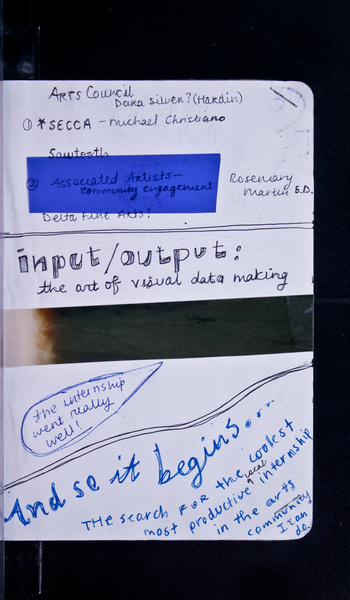 ARTS COUNCIL
Dara Silver? (Hardin)
① * SECCA - Michael Christiano
Sawtooth
② Associated Artists -
community engagement
Rosemary
Martin E.D.
Delta Fine Arts?
input/output:
the art of visual data making
the internship
went really
well!
And so it begins...
THE search FOR the coolest
most productive local internship
in the arts
community
I can
do.